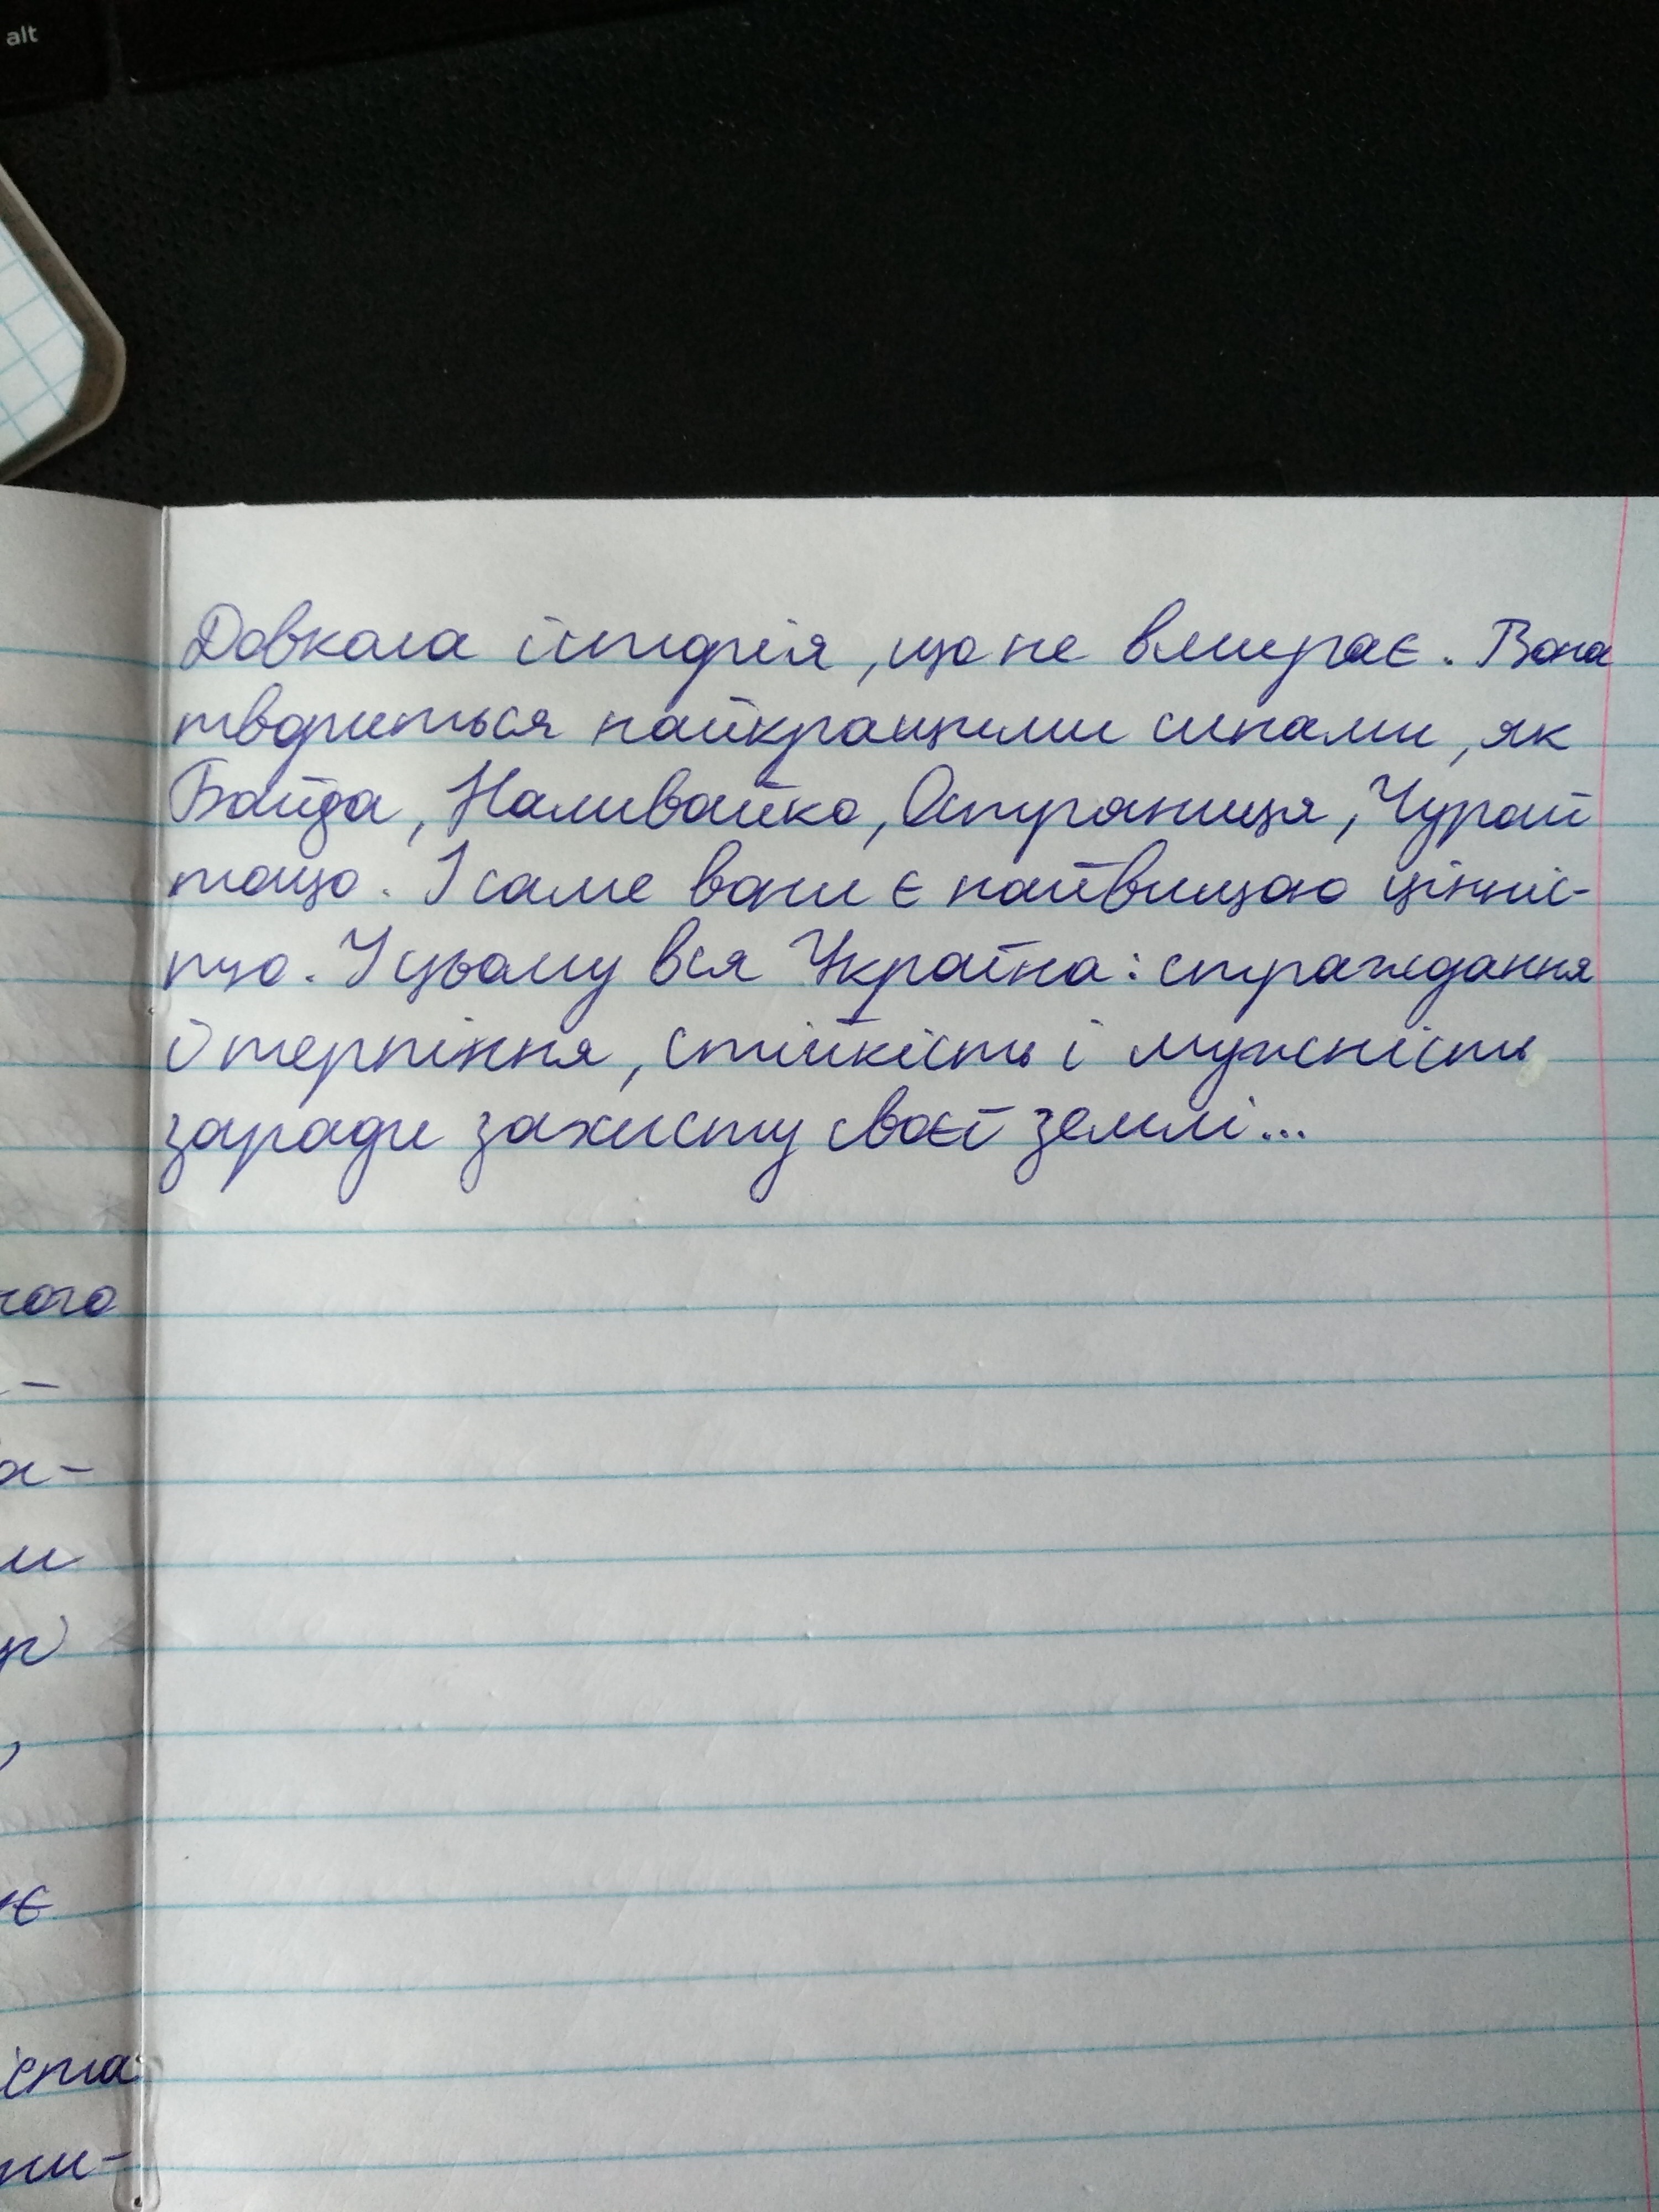 alt
Довкола історія, що не вмирає. Вона
твориться найкращими синами, як
Байда, Наливайко, Остряниця, Чурай
тощо. І саме вони є найвищою цінніс-
тю. У цьому вся Україна: страждання
й терпіння, стійкість і мужність
заради захисту своєї землі...